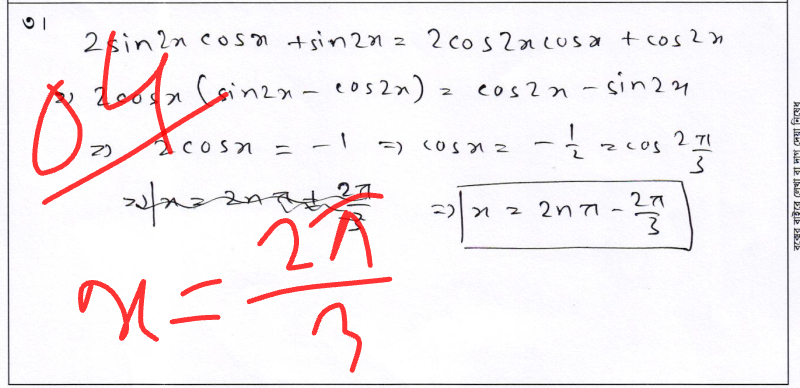 ৩।
2sin2x cosx + sin2x = 2cos2x cosx + cos2x
⇒ 2cosx (sin2x - cos2x) = cos2x - sin2x
⇒ 2cosx = -1 ⇒ cosx = -1/2 = cos 2π/3
⇒ x = 2nπ ± 2π/3 ⇒ x = 2nπ - 2π/3
04
x = 2π/3